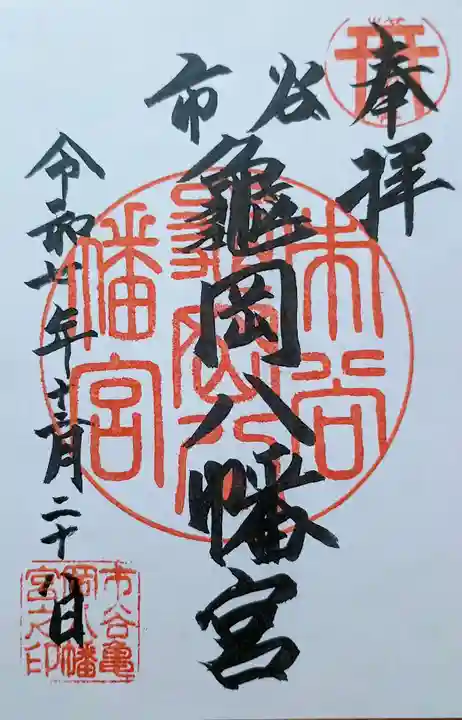 奉拝
市谷
龜岡八幡宮
令和七年十二月二十八日
市谷
龜岡八
幡宮
市谷亀
岡八幡
宮之印